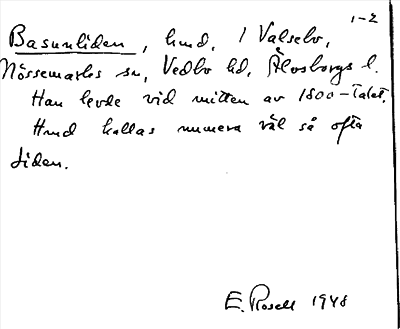 1-2
Basunliden, hmd, 1 Valselv,
Nössemarks sn, Vedbo hd, Älvsborgs l.
Han levde vid mitten av 1800-talet.
Hmd kallas numera väl så ofta
Liden.
E. Rosell 1948